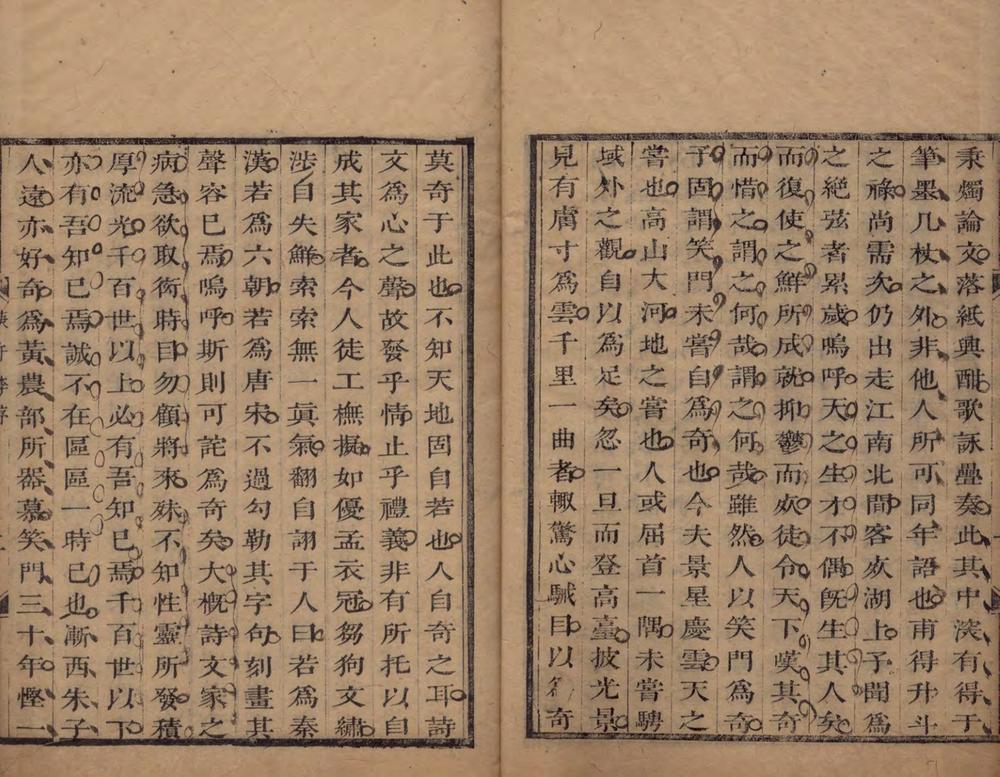 秉燭論文落紙興酣歌詠疊奏此其中深有得于
筆墨几杖之外非他人所可同年語也甫得升斗
之祿尚需次仍出走江南北間客歿湖上予聞為
之絕弦者累歲嗚呼天之生才不偶旣生其人矣
而復使之鮮所成就抑鬱而歿徒令天下嘆其奇
而惜之謂之何哉謂之何哉雖然人以笑門為奇
予固謂笑門未嘗自為奇也今夫景星慶雲天之
嘗也高山大河地之嘗也人或屈首一隅未嘗騁
域外之觀自以為足矣忽一旦而登高臺披光景
見有膚寸為雲千里一曲者輙驚心駴目以為奇
莫奇于此也不知天地固自若也人自奇之耳詩
文為心之聲故發乎情止乎禮義非有所托以自
成其家者今人徒工橅擬如優孟衣冠芻狗文繡
涉自失鮮索索無一眞氣翻自詡于人曰若為秦
漢若為六朝若為唐宋不過勾勒其字句刻畫其
聲容已焉嗚呼斯則可詫為奇矣大槪詩文家之
病急欲取衒時目勿顧將來殊不知性靈所發積
厚流光千百世以上必有吾知已焉千百世以下
亦有吾知已焉誠不在區區一時已也漸西朱子
人遠亦好奇為黃農部所器慕笑門三十年慳一